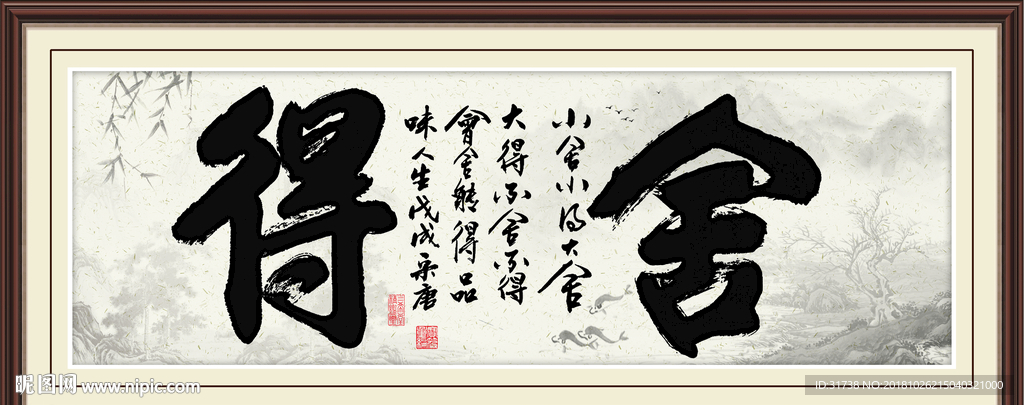 舍
小舍小得大舍
大得不舍不得
會舍能得品
味人生戊戌
得
昵图网 www.nipic.com
ID:31738 NO:20181026215040321000